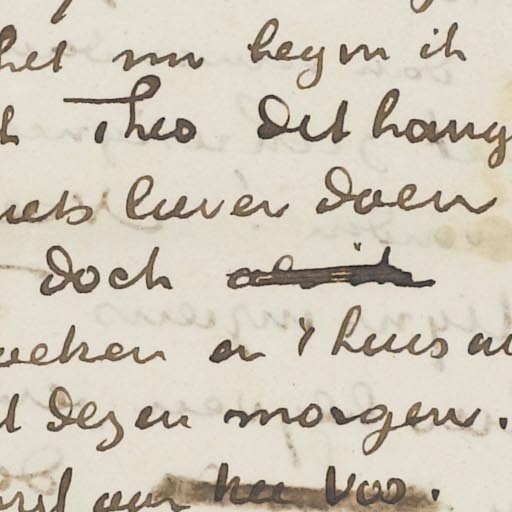 het nu begin ik
Theo dit hang
liever doen
doch als ik
oeken en 't huis
dezen morgen.
aan hee Voo.